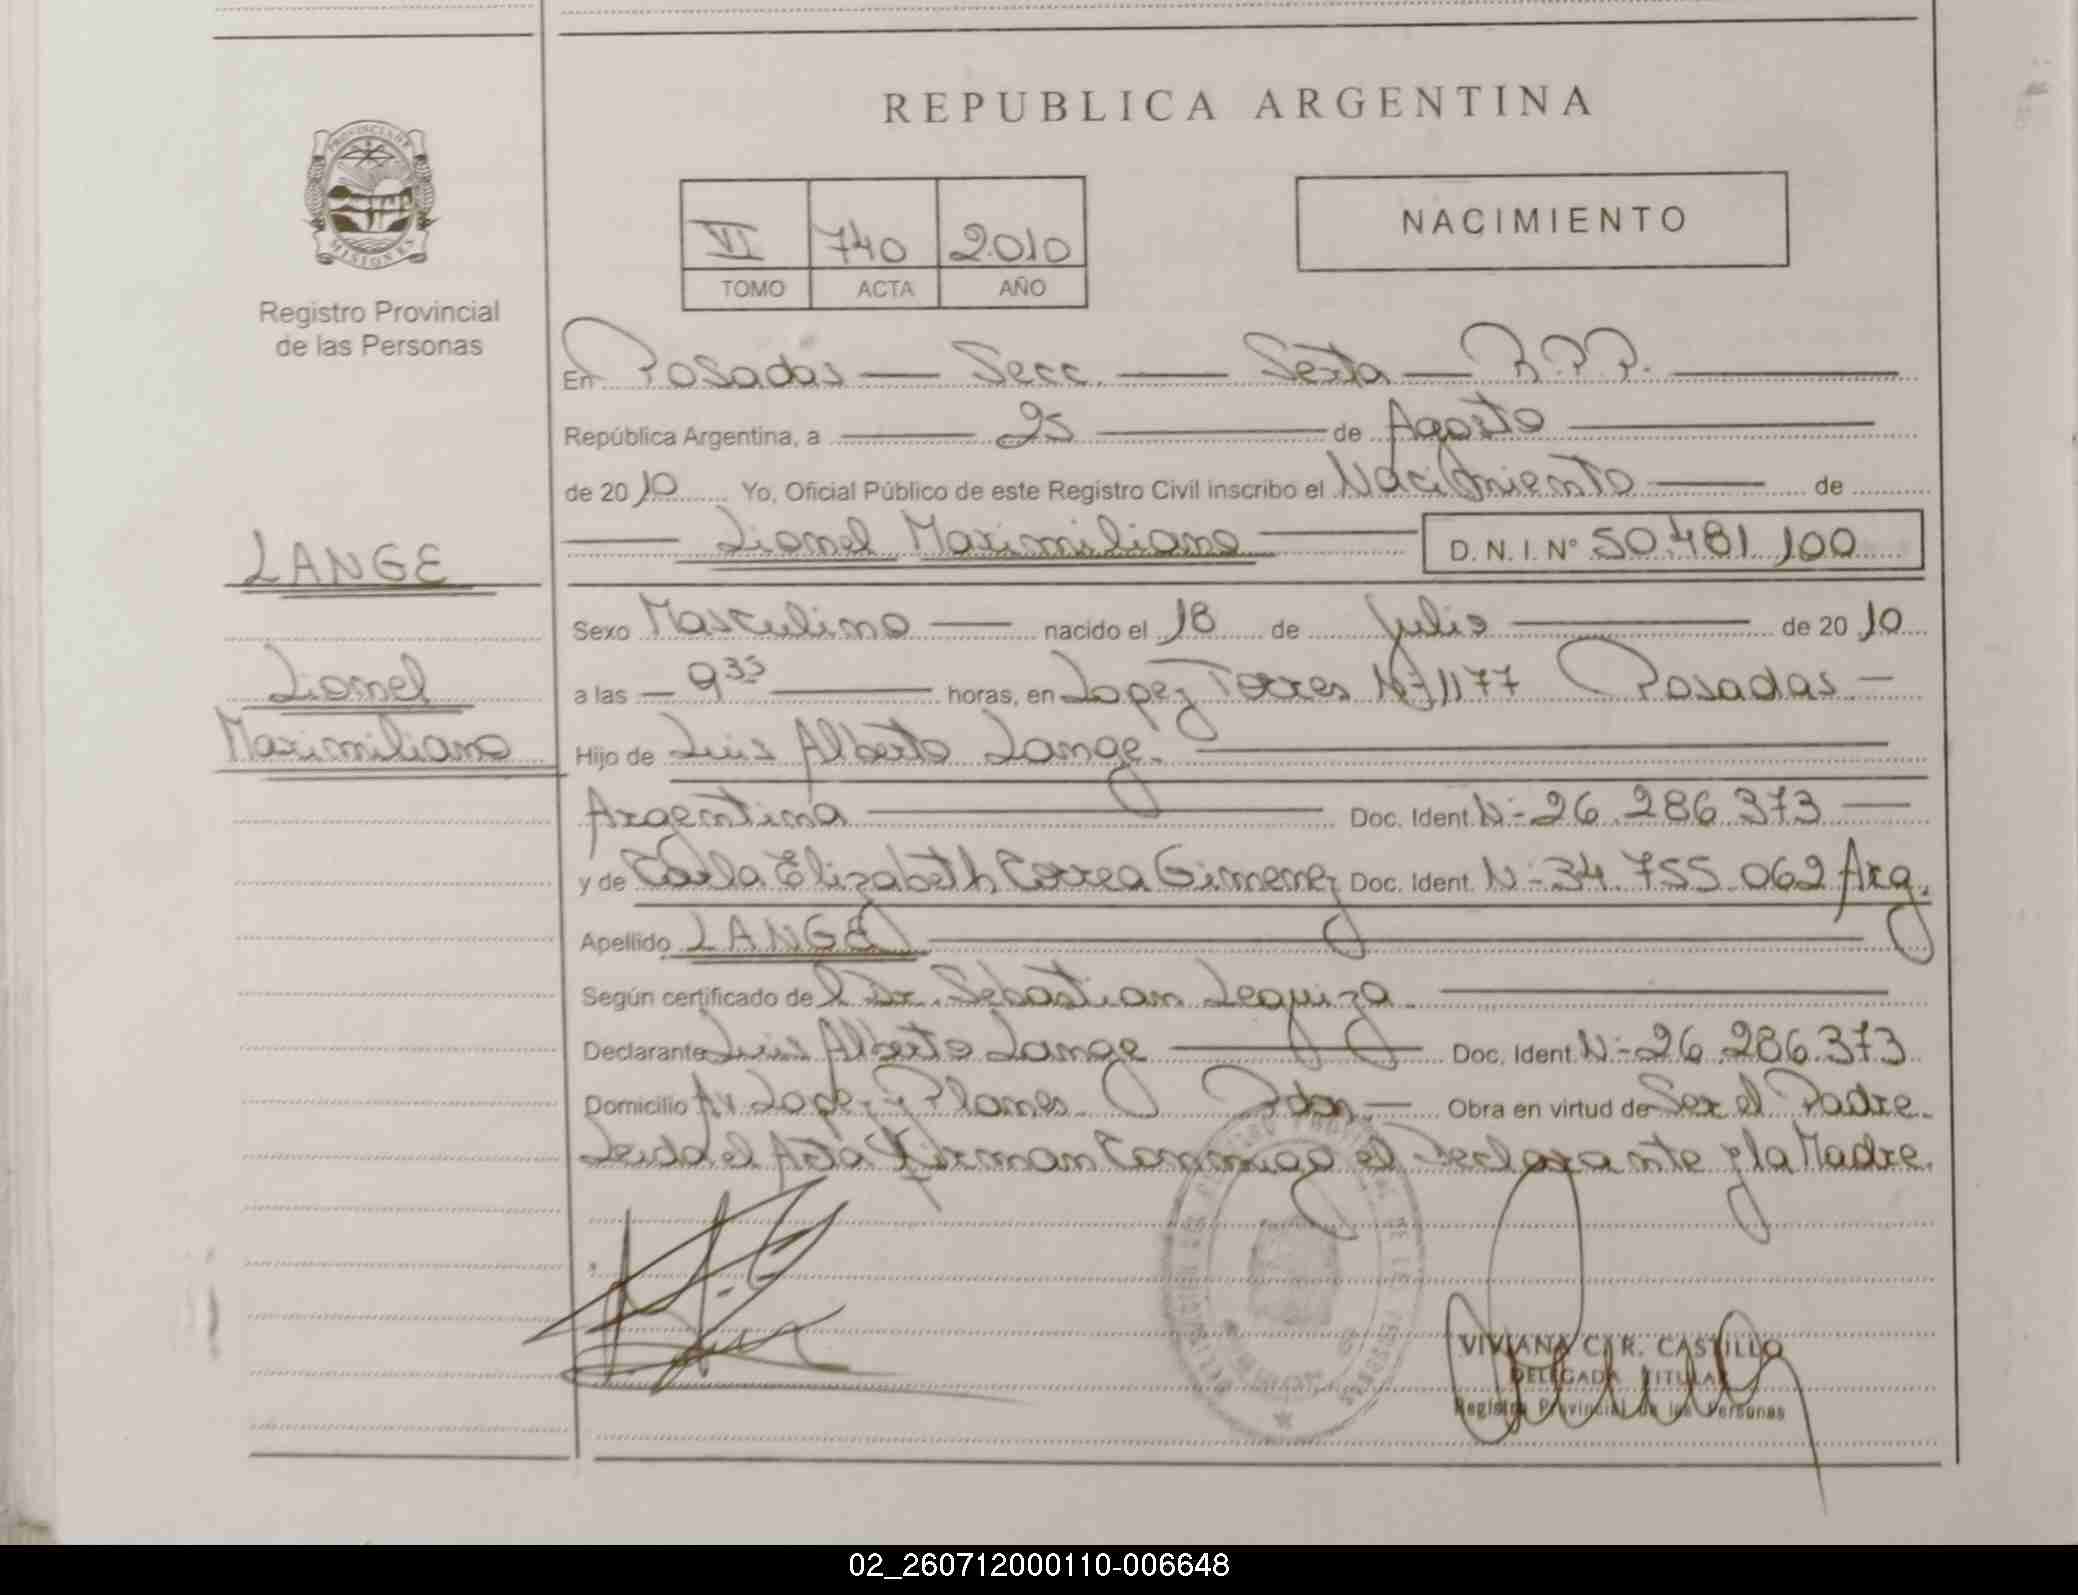 REPUBLICA ARGENTINA
PROVINCIA DE MISIONES
Registro Provincial
de las Personas
VI 740 2010
TOMO ACTA AÑO
NACIMIENTO
En Posadas — Secc. — Sexta — R.P.P.
República Argentina, a — 25 — de Agosto
de 2010 Yo, Oficial Público de este Registro Civil inscribo el Nacimiento — de
— Lionel Maximiliano — D.N.I. Nº 50.481.100
LANGE
Lionel
Maximiliano
Sexo Masculino — nacido el 18 de Julio — de 2010
a las — 9 35 — horas, en Lopez Torres Nº 1177 Posadas —
Hijo de Luis Alberto Lange.
Argentina — Doc. Ident. Nº 26.286.373 —
y de Carla Elizabeth Correa Gimenez Doc. Ident. Nº 34.755.062 Arg.
Apellido LANGE
Según certificado del Dr. Sebastian Leguiza
Declarante Luis Alberto Lange — Doc. Ident. Nº 26.286.373
Domicilio Av. Lopez y Planes Pdas. — Obra en virtud de Ser el Padre.
Leida el Acta Firman Conmigo el Declarante y la Madre.
VIVIANA C. R. CASTILLO
DELEGADA TITULAR
Registro Provincial de las Personas
02_260712000110-006648